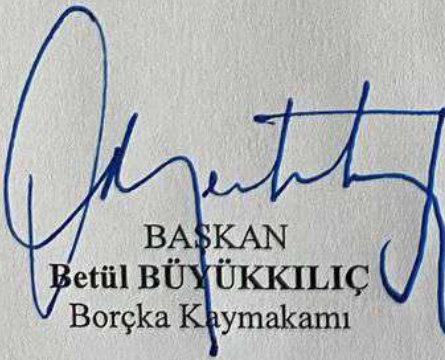 BAŞKAN
Betül BÜYÜKKILIÇ
Borçka Kaymakamı